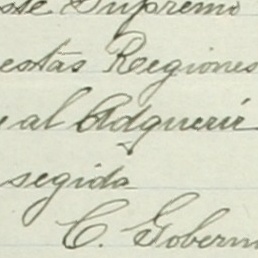 ste Supremo
estas Regiones
al Adquerir
segida
C. Gobern